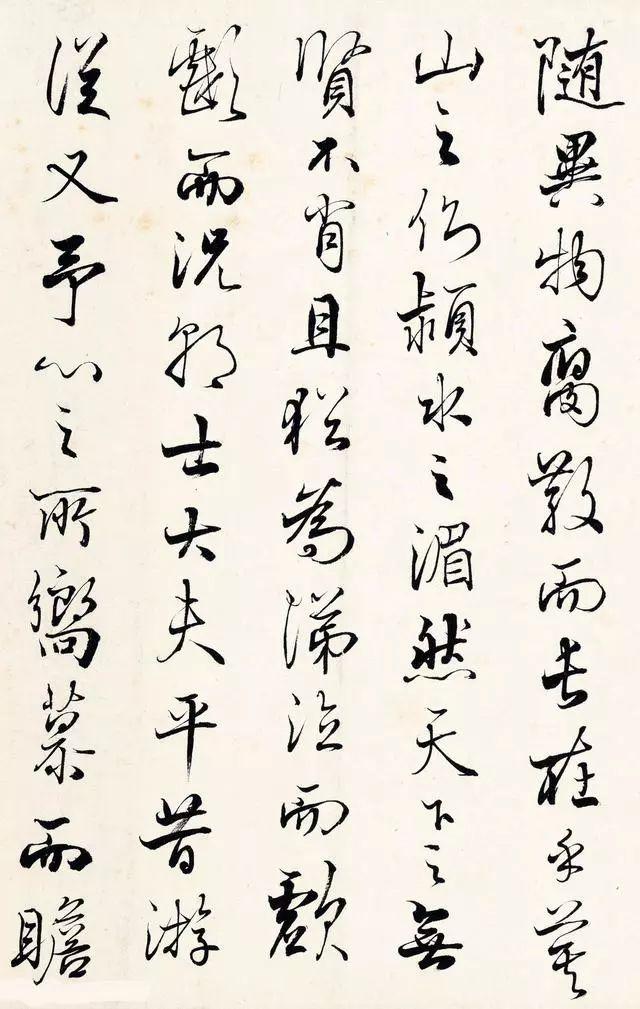 隨異物腐散而長在乎箕
山之側潁水之湄然天下之無
賢不肖且猶為涕泣而歔
欷而況朝士大夫平昔游
從又予心之所嚮慕而瞻